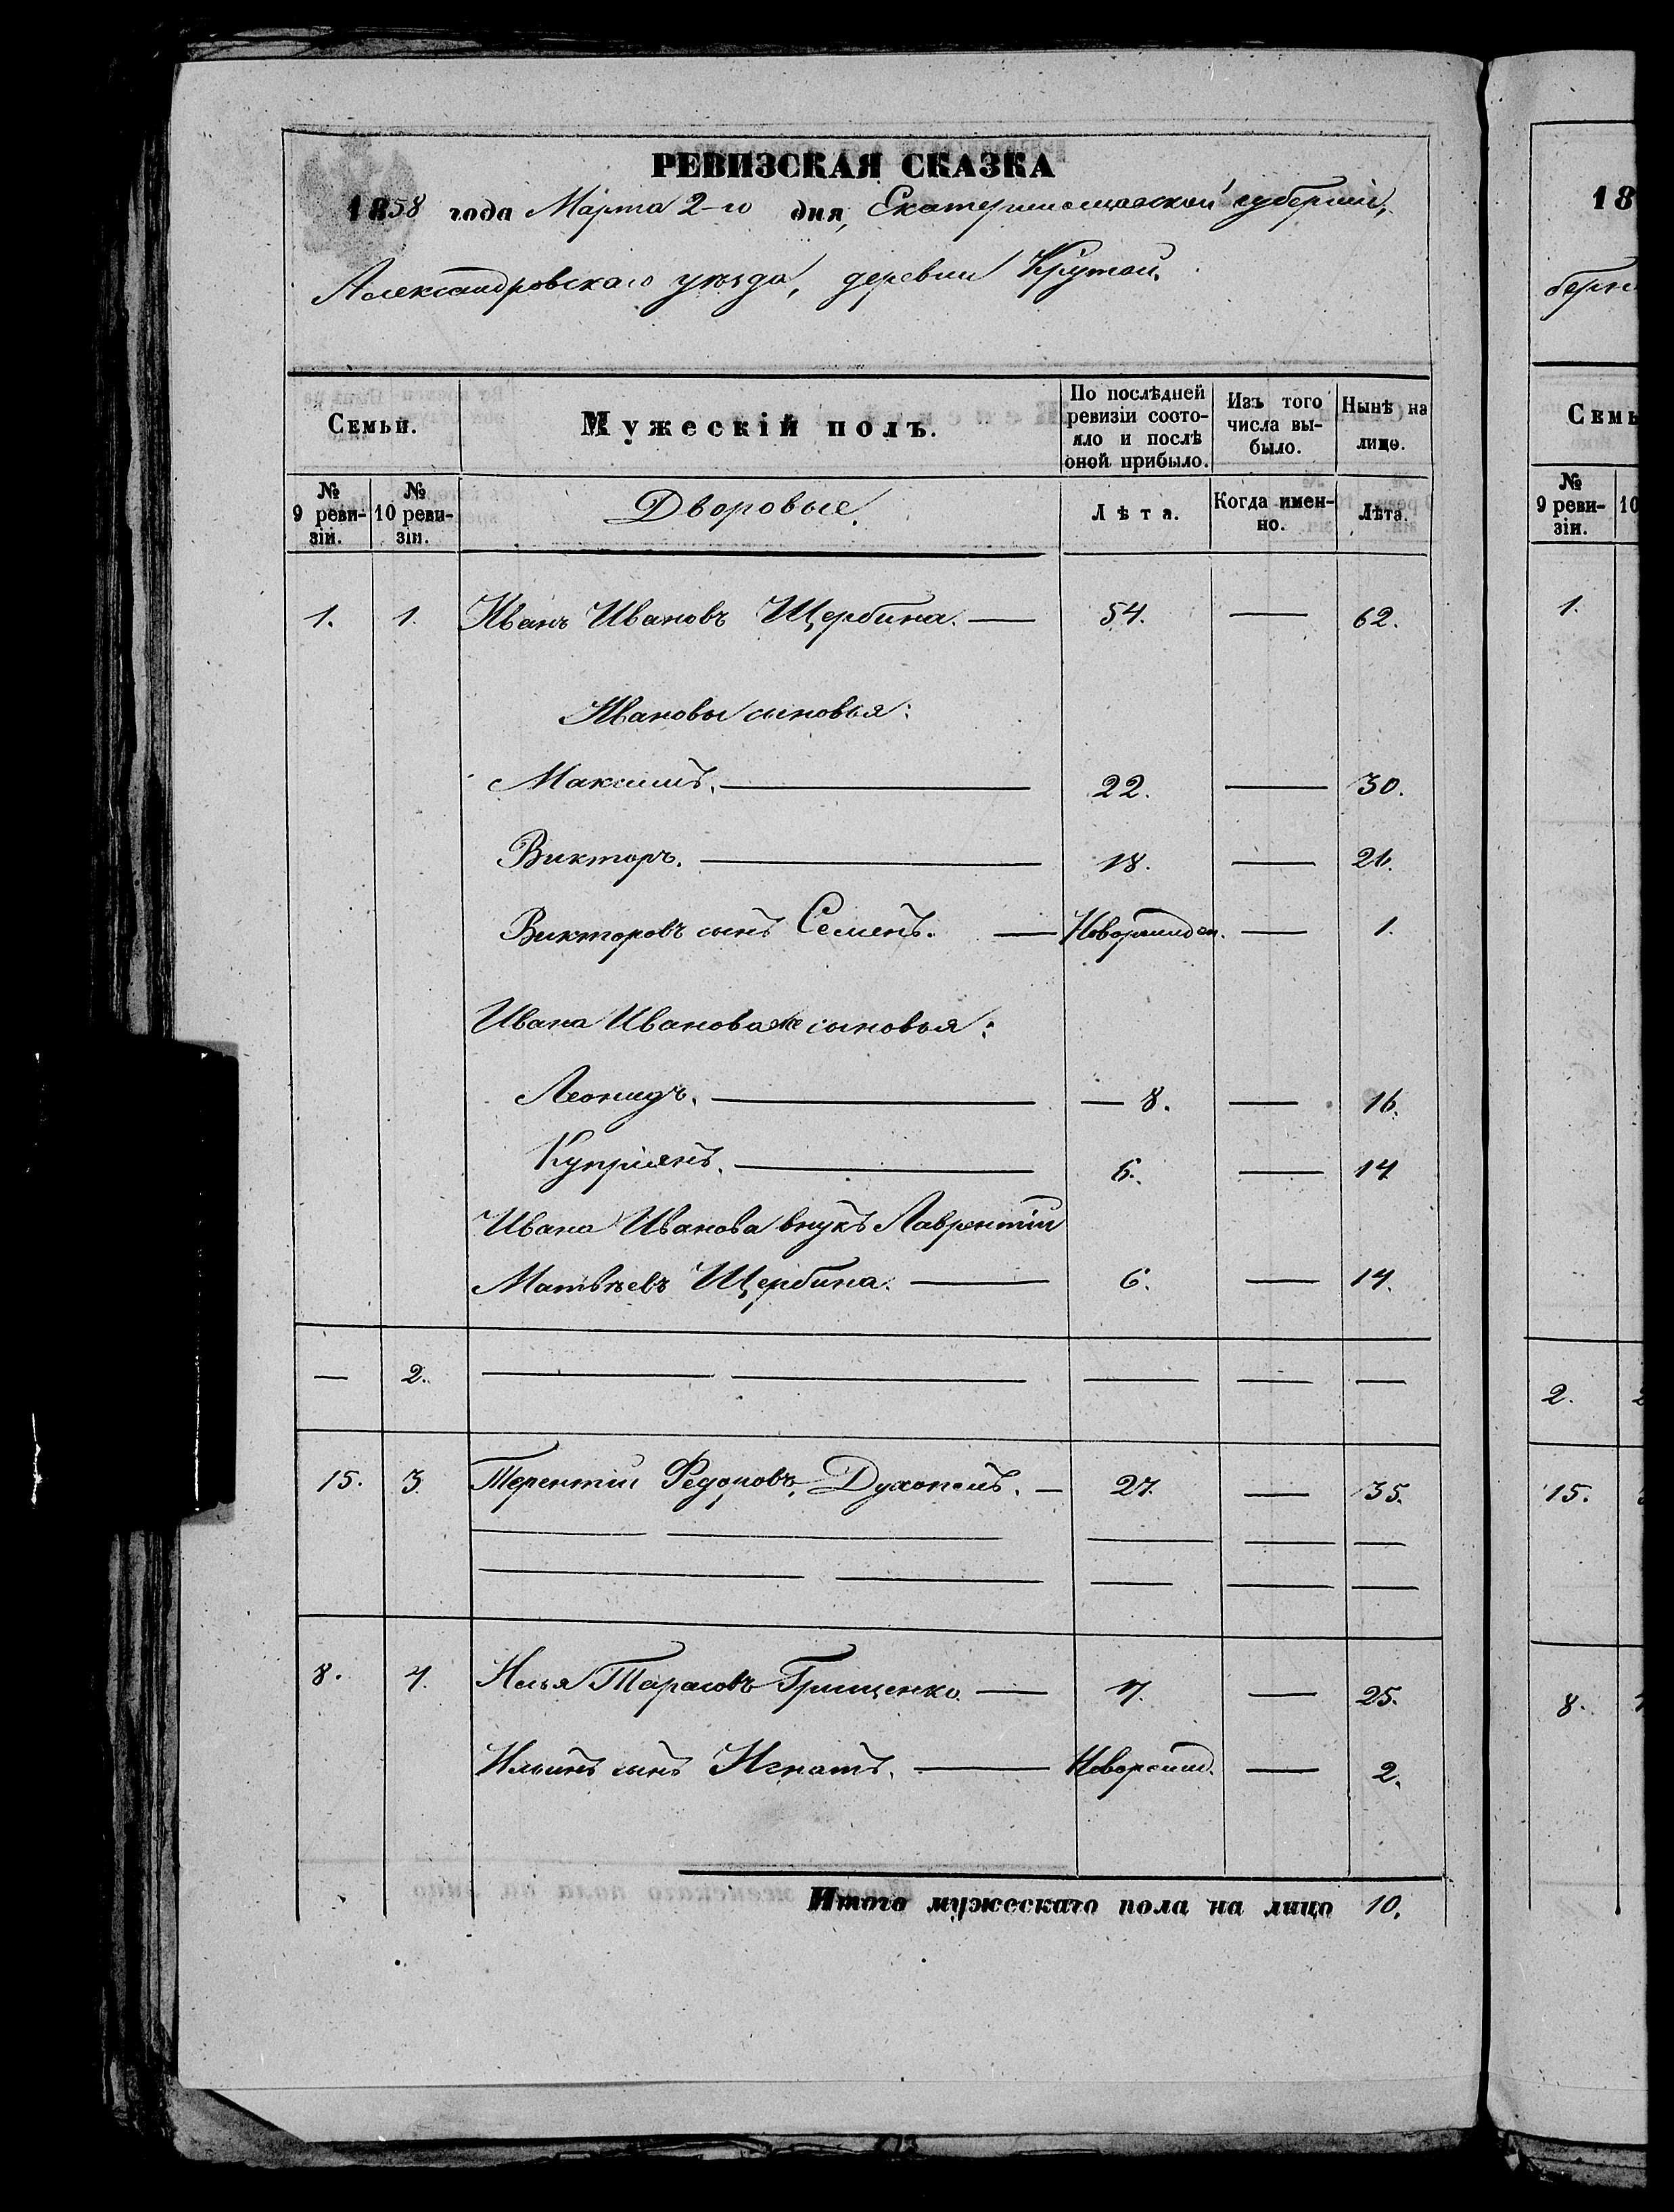 РЕВИЗСКАЯ СКАЗКА
1858 года Марта 2-го дня, Екатеринославской губерніи,
Александровскаго уѣзда, деревни Крутой.
Семьи.
Мужескій полъ.
По послѣдней ревизіи состояло и послѣ оной прибыло.
Изъ того числа выбыло.
Нынѣ на лицо.
№ 9 ревизіи.
№ 10 ревизіи.
Дворовые.
Лѣта.
Когда именно.
Лѣта.
1. 1. Иванъ Ивановъ Щербина. — 54. — 62.
Ивановы сыновья:
Максимъ. — 22. — 30.
Викторъ. — 18. — 26.
Викторовъ сынъ Семенъ. — Новорожден. — 1.
Ивана Иванова же сыновья:
Леонидъ. — 8. — 16.
Купріянъ. — 6. — 14
Ивана Иванова внукъ Лаврентій
Матвѣевъ Щербина. — 6. — 14.
— 2. — — — — —
15. 3. Терентій Федоровъ — 27. — 35.
8. 4. Илья Тарасовъ Грищенко. — 17. — 25.
Ильинъ сынъ Игнатъ. — Новорожд. — 2.
Итого мужескаго пола на лицо 10.
18
берн
Семь
№ 9 ревизіи.
10
1.
2.
15.
8.